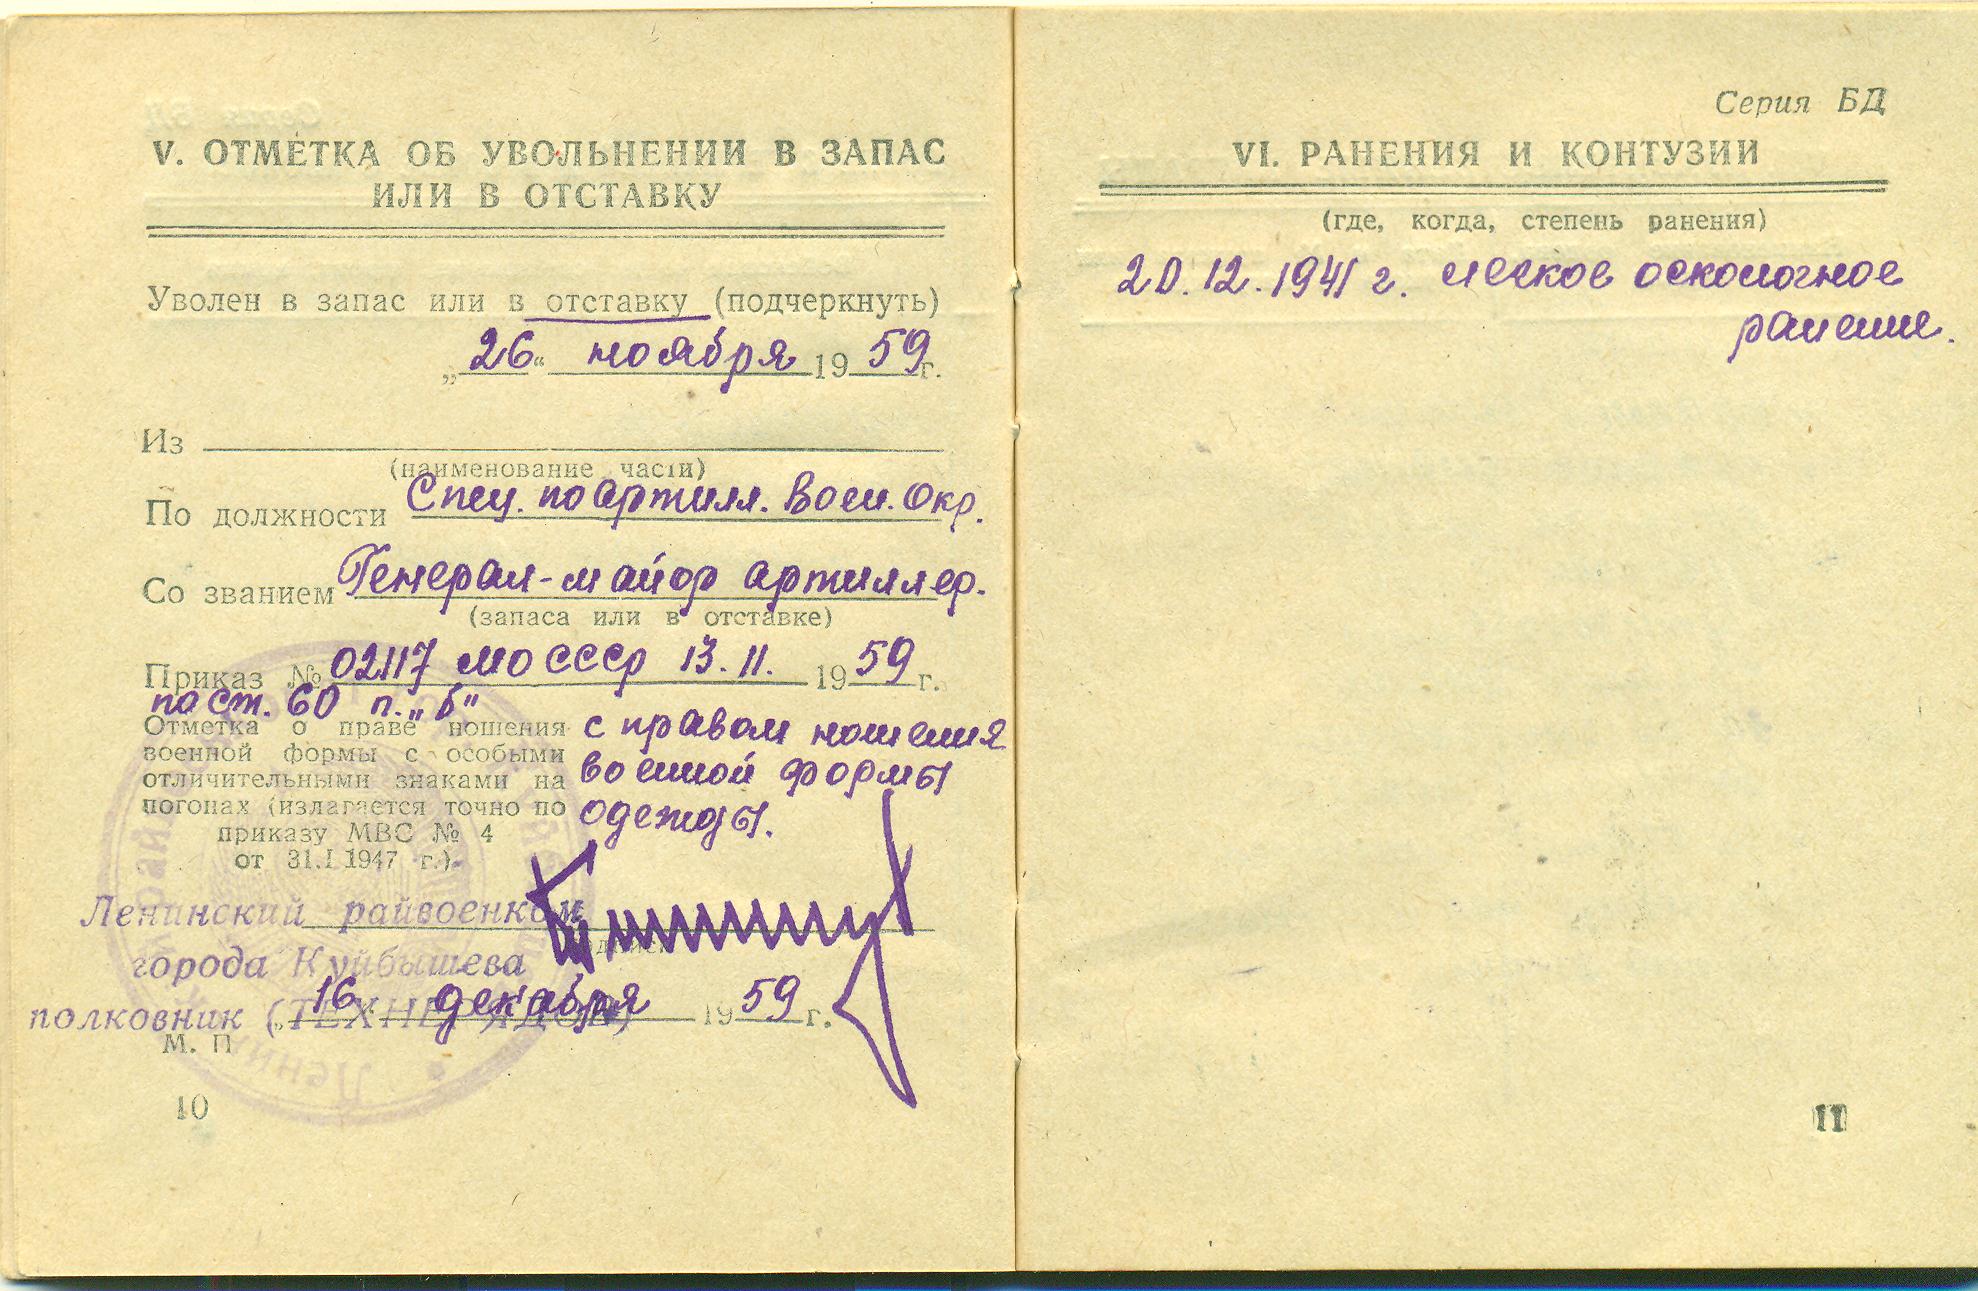 V. ОТМЕТКА ОБ УВОЛЬНЕНИИ В ЗАПАС
ИЛИ В ОТСТАВКУ
Уволен в запас или в отставку (подчеркнуть)
„26“ ноября 1959 г.
Из
(наименование части)
По должности Спец. по артилл. Воен. Окр.
Со званием Генерал-майор артиллер.
(запаса или в отставке)
Приказ № 02117 МО СССР 13.11. 1959 г.
по ст. 60 п. „б“
Отметка о праве ношения
военной формы с особыми
отличительными знаками на
погонах (излагается точно по
приказу МВС № 4
от 31.I 1947 г.).
с правом ношения
военной формы
одежды.
Ленинский райвоенком
города Куйбышева
полковник (ТЕХНЕРЯДОВ)
„16 декабря 1959 г.
М. П
10
Серия БД
VI. РАНЕНИЯ И КОНТУЗИИ
(где, когда, степень ранения)
20.12.1941 г. легкое осколочное
ранение.
11